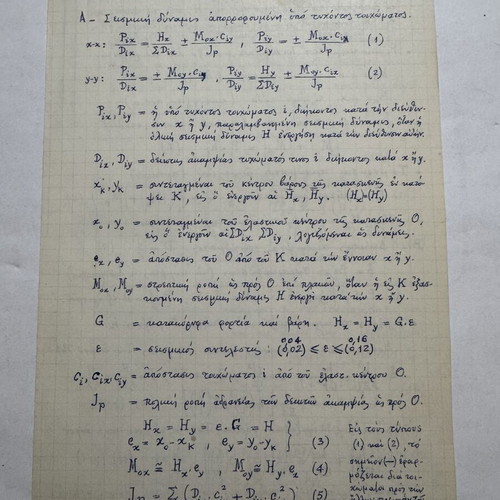 Α – Σεισμική δύναμις ἀπορροφουμένη ὑπό τυχόντος τοιχώματος.
x-x: Pix/Dix = Hx/ΣDix ± Mox·ciy/Jp , Piy/Diy = ± Mox·cix/Jp (1)
y-y: Pix/Dix = ± Moy·ciy/Jp , Piy/Diy = Hy/ΣDiy ± Moy·cix/Jp (2)
Pix, Piy = ἡ ὑπό τυχόντος τοιχώματος i, διήκοντος κατά τήν διεύθυν-
σιν x ἤ y, παραλαμβανομένη σεισμική δύναμις, ὅταν ἡ
ὁλική σεισμική δύναμις H ἐνεργήσῃ κατά τήν διεύθυνσιν αὐτήν.
Dix, Diy = δείκτης ἀκαμψίας τοιχώματός τινος i διήκοντος κατά x ἤ y.
xK, yK = συντεταγμέναι τοῦ κέντρου βάρους τῆς κατασκευῆς ἐν κατό-
ψει K, εἰς ὅ ἐνεργοῦν αἱ Hx, Hy. (Hx)=(Hy)
xo, yo = συντεταγμέναι τοῦ ἐλαστικοῦ κέντρου τῆς κατασκευῆς O,
εἰς ὅ ἐνεργοῦν αἱ ΣDix, ΣDiy, λογιζόμεναι ὡς δυνάμεις.
ex, ey = ἀπόστασις τοῦ O ἀπό τοῦ K κατά τήν ἔννοιαν x ἤ y.
Mox, Moy = στρεπτική ροπή ὡς πρός O ἐπί πλακῶν, ὅταν ἡ εἰς K ἐξασ-
κουμένη σεισμική δύναμις H ἐνεργῇ κατά τήν x ἤ y.
G = κατακόρυφα φορτία καί βάρη. Hx = Hy = G.ε
0,04 0,16
ε = σεισμικός συντελεστής: (0,02) ≤ ε ≤ (0,12)
ci, cix, ciy = ἀπόστασις τοιχώματος i ἀπό τοῦ ἐλαστ. κέντρου O.
Jp = πολική ροπή ἀδρανείας τῶν δεικτῶν ἀκαμψίας ὡς πρός O.
Hx = Hy = ε·G = H
ex = xo-xK , ey = yo-yK } (3)
Mox ≅ Hx.ey , Moy ≅ Hy.ex (4)
Jp = Σ (Di·c² + Di·c²) (5)
Εἰς τούς τύπους
(1) καί (2), τό
σημεῖον (–) ἐφαρ-
μόζεται διά τοι-
χώματα πρός τήν